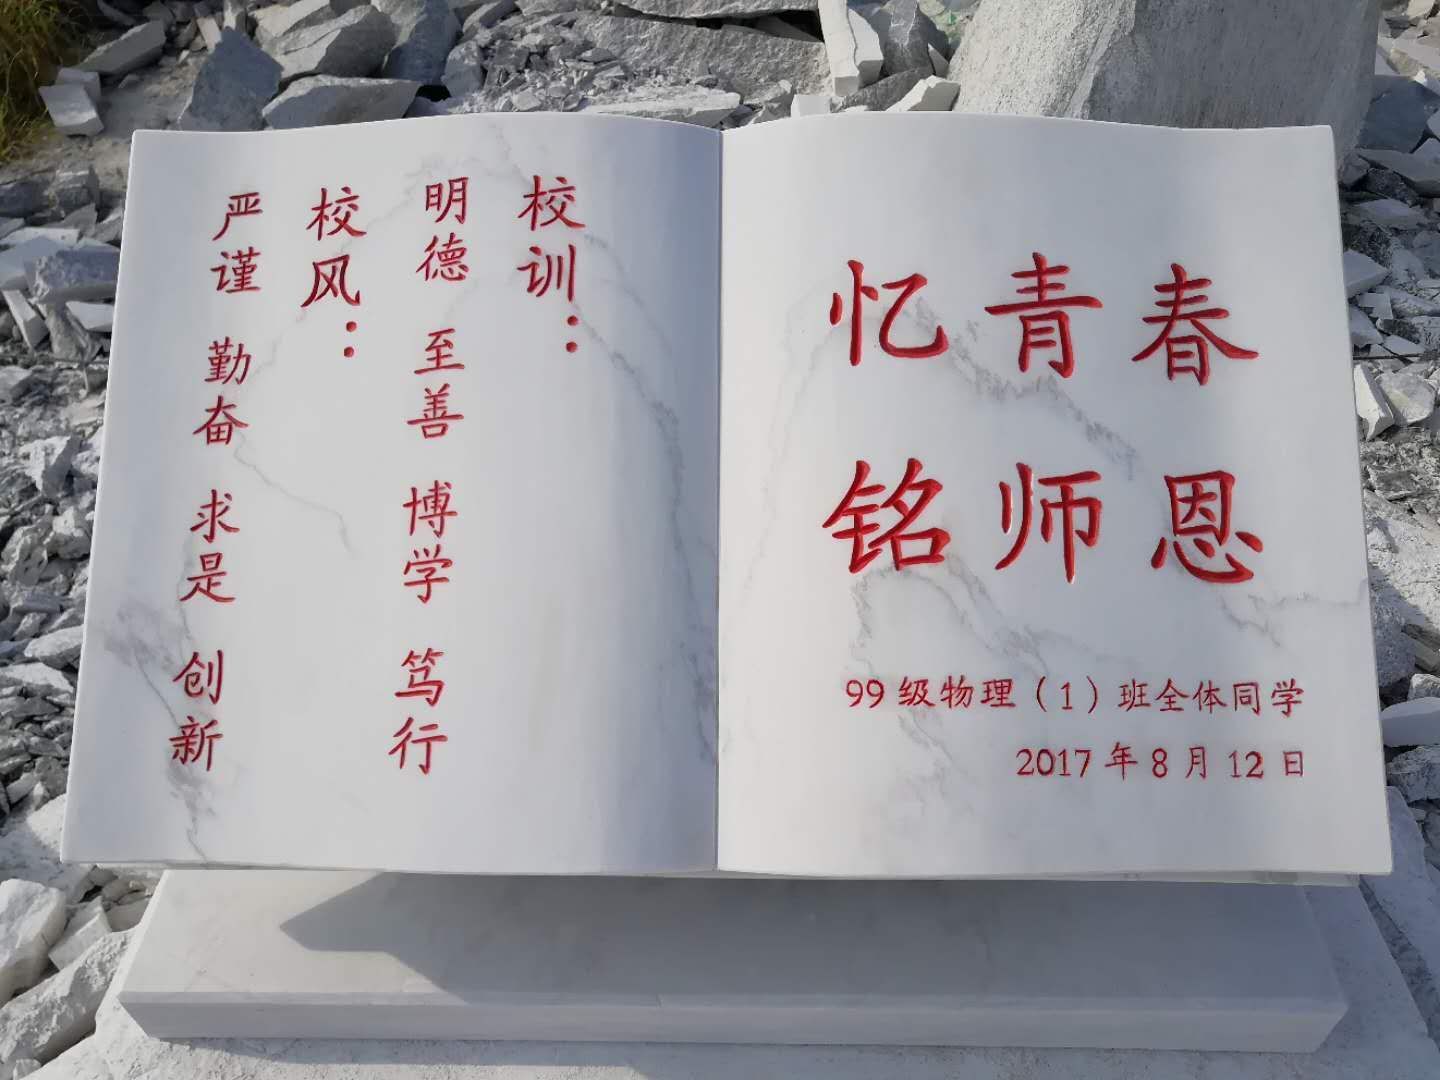 校训：
明德 至善 博学 笃行
校风：
严谨 勤奋 求是 创新
忆青春
铭师恩
99级物理（1）班全体同学
2017年8月12日